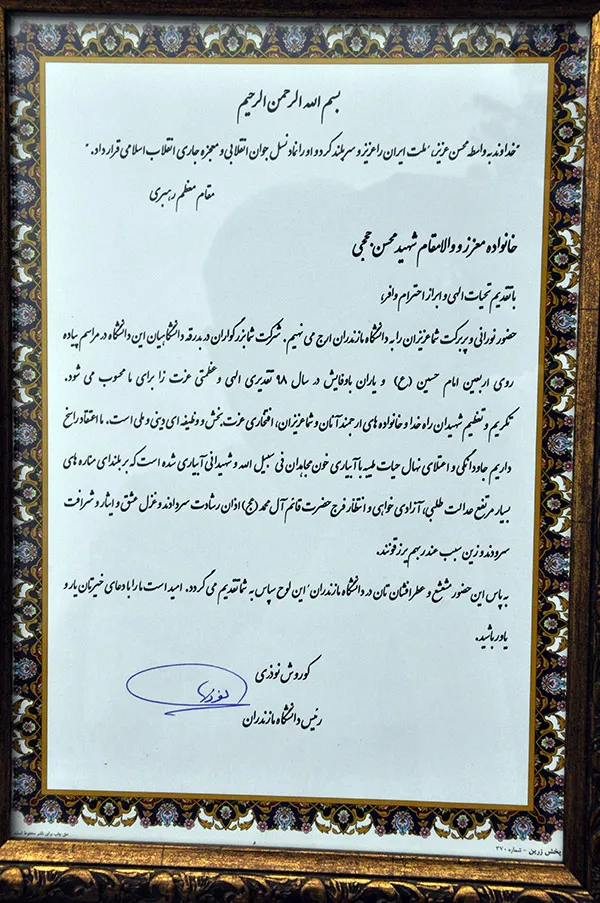 بسم الله الرحمن الرحیم
"خداوند به واسطه محسن عزیز، ملت ایران را عزیز و سربلند کرد و او را نماد نسل جوان انقلابی و معجزه جاری انقلاب اسلامی قرار داد."
مقام معظم رهبری
خانواده معزز و والامقام شهید محسن حججی
با تقدیم تحیات الهی و ابراز احترام وافر،
حضور نورانی و پربرکت شما عزیزان را به دانشگاه مازندران ارج می نهیم. شرکت شما بزرگواران در بدرقه دانشگاهیان این دانشگاه در مراسم پیاده
روی اربعین امام حسین (ع) و یاران باوفایش در سال ۹۸ تقدیری الهی و عظمتی عزت زا برای ما محسوب می شود.
تکریم و تعظیم شهیدان راه خدا و خانواده های ارجمند آنان و شما عزیزان، افتخاری عزت بخش و وظیفه ای دینی و ملی است. ما اعتقاد راسخ
داریم جاودانگی و اعتلای نهال حیات طیبه با آبیاری خون مجاهدان فی سبیل الله و شهیدانی آبیاری شده است که بر بلندای مناره های
بسیار مرتفع عدالت طلبی، آزادی خواهی و انتظار فرج حضرت قائم آل محمد (عج) اذان رشادت سردادند و غزل عشق و ایثار و شرافت
سرودند و زین سبب عند ربهم یرزقونند.
به پاس این حضور مشعشع و عطرافشان تان در دانشگاه مازندران، این لوح سپاس به شما تقدیم می گردد. امید است ما را با دعای خیرتان یار و
یاور باشید.
کوروش نوذری
رئیس دانشگاه مازندران
حق چاپ برای ناشر محفوظ است
پخش زرین - شماره ۳۷۰